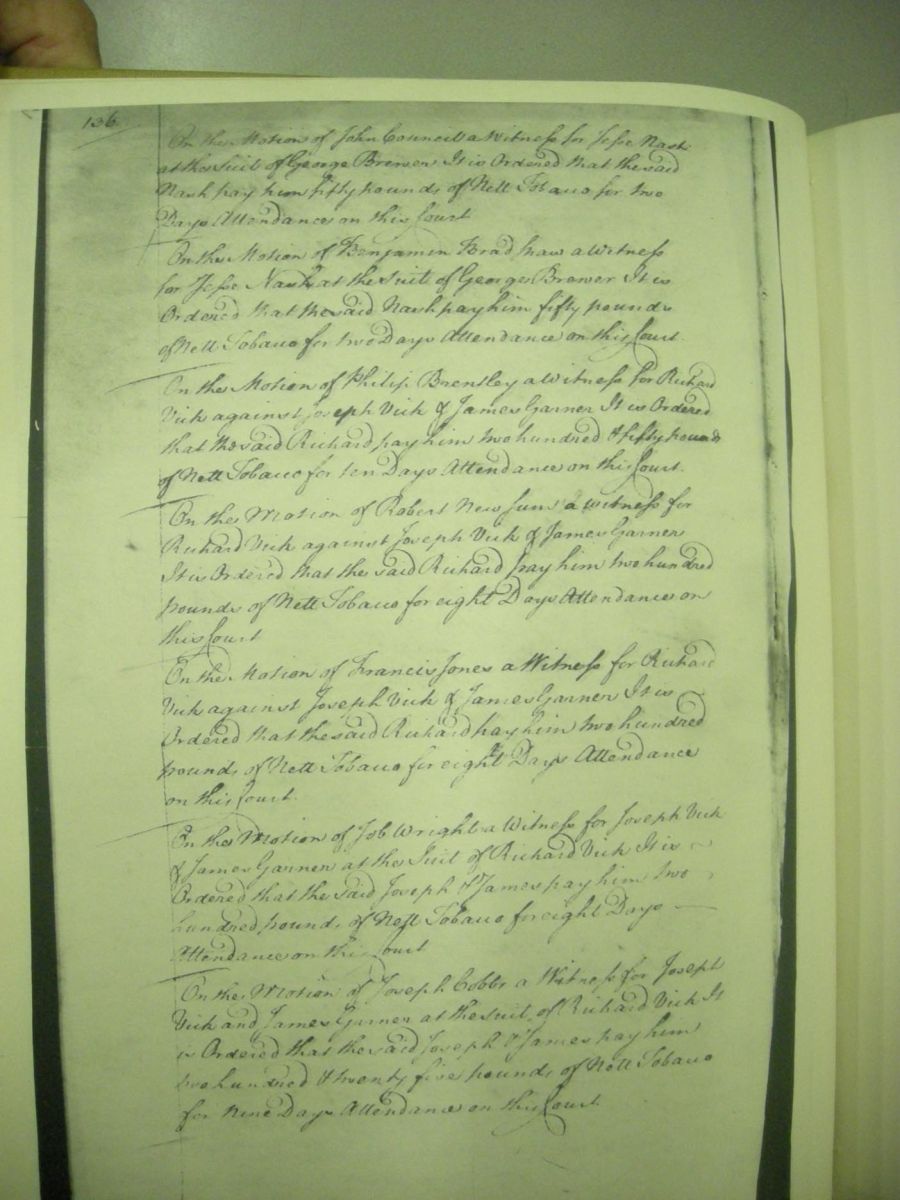 136
On the Motion of John Council a Witness for Jesse Nash
at the Suit of George Brewer It is Ordered that the said
Nash pay him fifty pounds of Nett Tobacco for two
Days Attendance on this Court
On the Motion of Benjamin Bradshaw a Witness
for Jesse Nash at the Suit of George Brewer It is
Ordered that the said Nash pay him fifty pounds
of Nett Tobacco for two Days Attendance on this Court.
On the Motion of Philip Brentley a Witness for Richard
Vick against Joseph Vick & James Garner It is Ordered
that the said Richard pay him two hundred & fifty pounds
of Nett Tobacco for ten Days Attendance on this Court.
On the Motion of Robert Newsum a Witness for
Richard Vick against Joseph Vick & James Garner
It is Ordered that the said Richard pay him two hundred
pounds of Nett Tobacco for eight Days Attendance on
this Court
On the Motion of Francis Jones a Witness for Richard
Vick against Joseph Vick & James Garner It is
Ordered that the said Richard pay him two hundred
pounds of Nett Tobacco for eight Days Attendance
on this Court.
On the Motion of Job Wright a Witness for Joseph Vick
& James Garner at the Suit of Richard Vick It is
Ordered that the said Joseph & James pay him two
hundred pounds of Nett Tobacco for eight Days
Attendance on this Court
On the Motion of Joseph Cobbs a Witness for Joseph
Vick and James Garner at the Suit of Richard Vick It
is Ordered that the said Joseph & James pay him
two hundred & twenty five pounds of Nett Tobacco
for nine Days Attendance on this Court.